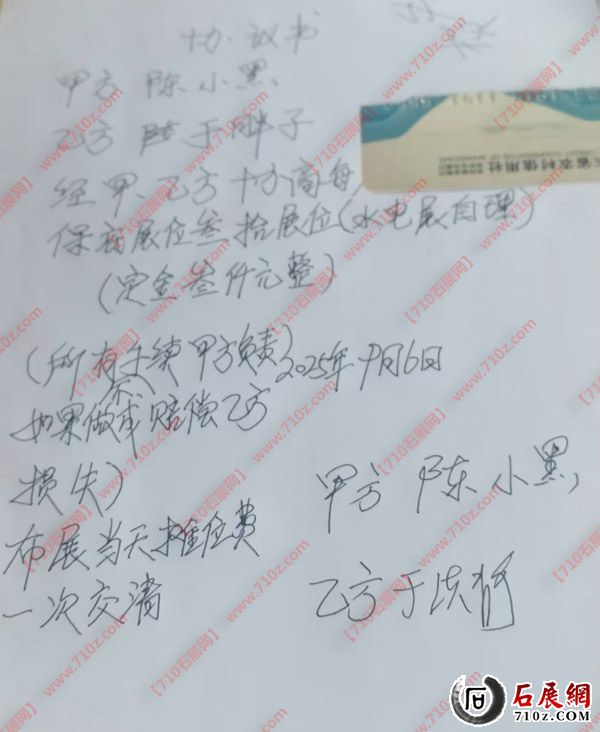 协议书
甲方 陈小黑
乙方 陆于胖子
经甲、乙方
保底展位叁拾展位(水电展自理)
(定金叁仟元整)
(所有手续甲方负责) 2025年9月6日
如果做不成赔偿乙方
损失)
甲方 陈小黑
布展当天摊位费
一次交清
乙方于
省农村信用社
【710石展网】www.710z.com
石展網
710z.com